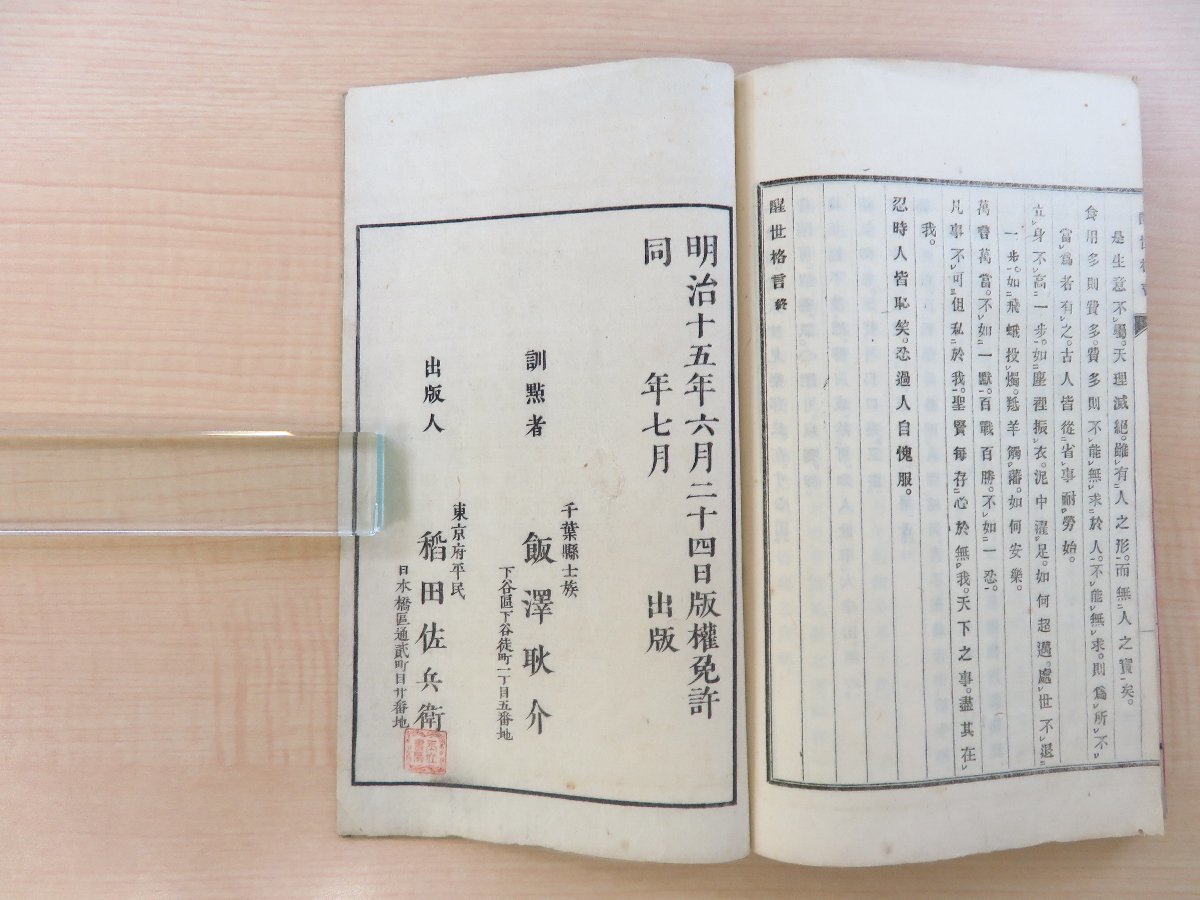 是生意不屬。天理滅絕。雖有人之形。而無人之實矣。
食用多則費多。費多則不能無求於人。不能無求。則爲所不
當爲者有之。古人皆從省事耐勞始。
立身不高一步。如塵裡振衣。泥中濯足。如何超邁。處世不退
一步。如飛蛾投燭。羝羊觸藩。如何安樂。
萬言萬當。不如一默。百戰百勝。不如一忍。
凡事不可但私於我。聖賢每存心於無我。天下之事。盡其在
我。
忍時人皆恥矣。忍過人自愧服。
醒世格言終
明治十五年六月二十四日版權免許
同年七月出版
訓點者
千葉縣士族
飯澤耿介
下谷區下谷徒町一丁目五番地
出版人
東京府平民
稻田佐兵衛
日本橋區通貳町目廿番地